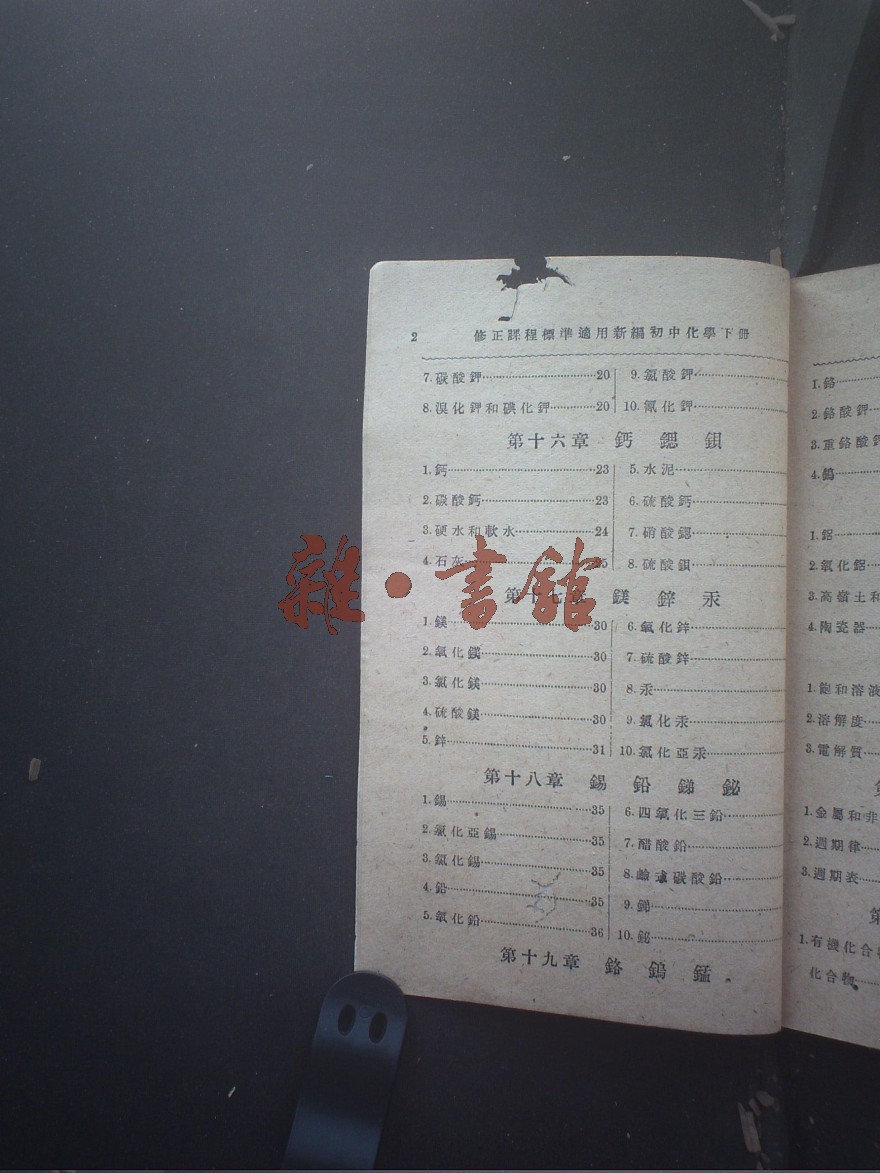 2 修正課程標準適用新編初中化學下冊
7. 碳酸鉀……20 9. 氯酸鉀……
8. 溴化鉀和碘化鉀……20 10. 氰化鉀……
第十六章 鈣 鍶 鋇
1. 鈣……23 5. 水泥……
2. 碳酸鈣……23 6. 硫酸鈣……
3. 硬水和軟水……24 7. 硝酸鍶……
4. 石灰……25 8. 硫酸鋇……
第十七章 鎂 鋅 汞
1. 鎂……30 6. 氧化鋅……
2. 氧化鎂……30 7. 硫酸鋅……
3. 氯化鎂……30 8. 汞……
4. 硫酸鎂……30 9. 氯化汞……
5. 鋅……31 10. 氯化亞汞……
第十八章 錫 鉛 銻 鉍
1. 錫……35 6. 四氧化三鉛……
2. 氯化亞錫……35 7. 醋酸鉛……
3. 氯化錫……35 8. 碳酸鉛……
4. 鉛……35 9. 銻……
5. 氧化鉛……36 10. 鉍……
第十九章 鉻 鎢 錳
1. 鉻……
2. 鉻酸鉀……
3. 重鉻酸鉀
4. 鎢……
1. 鋁……
2. 氧化鋁……
3. 高嶺土和
4. 陶瓷器……
1. 飽和溶液
2. 溶解度……
3. 電解質……
1. 金屬和非
2. 週期律……
3. 週期表……
第
1. 有機化合物
化合物……
雜·書館